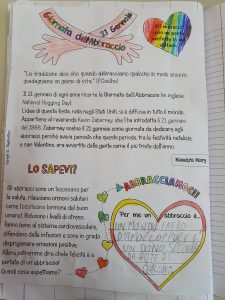 Giornata dell'Abbraccio 21 Gennaio
Un abbraccio
"La tradizione dice che quando abbracciamo qualcuno in modo sincero
guadagniamo un giorno di vita." (P.Coelho)
Il 21 gennaio di ogni anno ricorre la Giornata dell'Abbraccio (in inglese:
National Hugging Day).
L'idea di questa festa, nata negli Stati Uniti, si è diffusa in tutto il mondo.
Appartiene al reverendo Kevin Zaborney, che l'ha introdotta il 21 gennaio
del 1986. Zaborney scelse il 21 gennaio come giornata da dedicare agli
abbracci perché aveva pensato che questo periodo, tra le festività natalizie
e san Valentino, era avvertito dalla gente come il più triste dell'anno.
Maestra Mary
LO SAPEVI?
Gli abbracci sono un toccasana per
la salute, rilasciano ormoni salutari
come l'ossitocina (ormone del buon
umore). Riducono i livelli di stress.
Fanno bene al sistema cardiovascolare,
difendono dalle infezioni e sono in grado
di sprigionare emozioni positive.
Allora potremmo dire che la felicità è a
portata di un abbraccio!
Quindi cosa aspettiamo?
ABBRACCIAMOCI!!
Per me un abbraccio è...
UN MONDO FATTO
UN DONO SPECIALE
DA PARTE DI
QUALCUNO